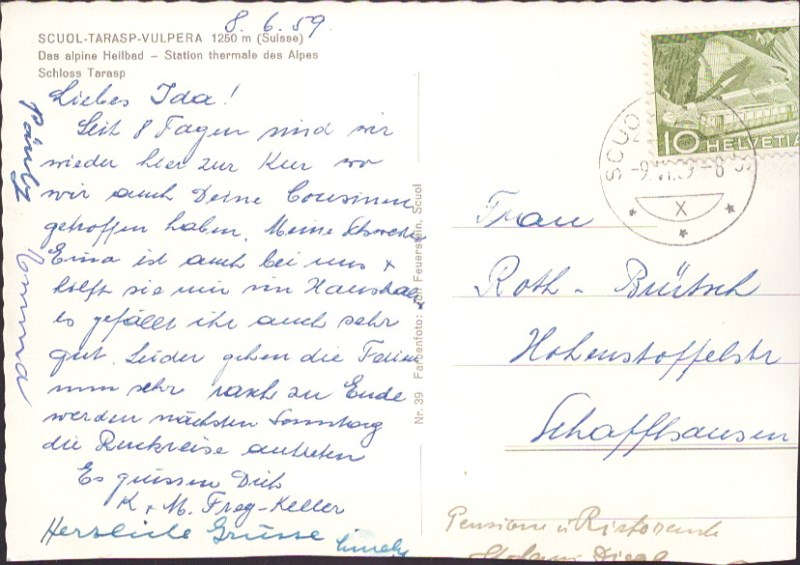 8. 6. 59.
SCUOL-TARASP-VULPERA 1250 m (Suisse)
Das alpine Heilbad – Station thermale des Alpes
Schloss Tarasp
Liebes Ida!
Seit 8 Tagen sind wir
wieder hier zur Kur wo
wir auch Deine Cousinen
getroffen haben. Meine Schwester
ist auch bei uns +
hilft sie mir im Haushalt
es gefällt ihr auch sehr
gut. Leider gehen die Ferien
nun sehr rasch zu Ende
werden nächsten Sonntag
die Rückreise antreten
Es grüssen Dich
K. + M. Frey-Keller
Herzliche Grüsse
Nr. 39 Farbenfoto: Feuerstein, Scuol
10 HELVETIA
SCUOL
X
Frau
Roth - Brütsch
Hohenstoffelstr
Schaffhausen
Pensione u Ristorante